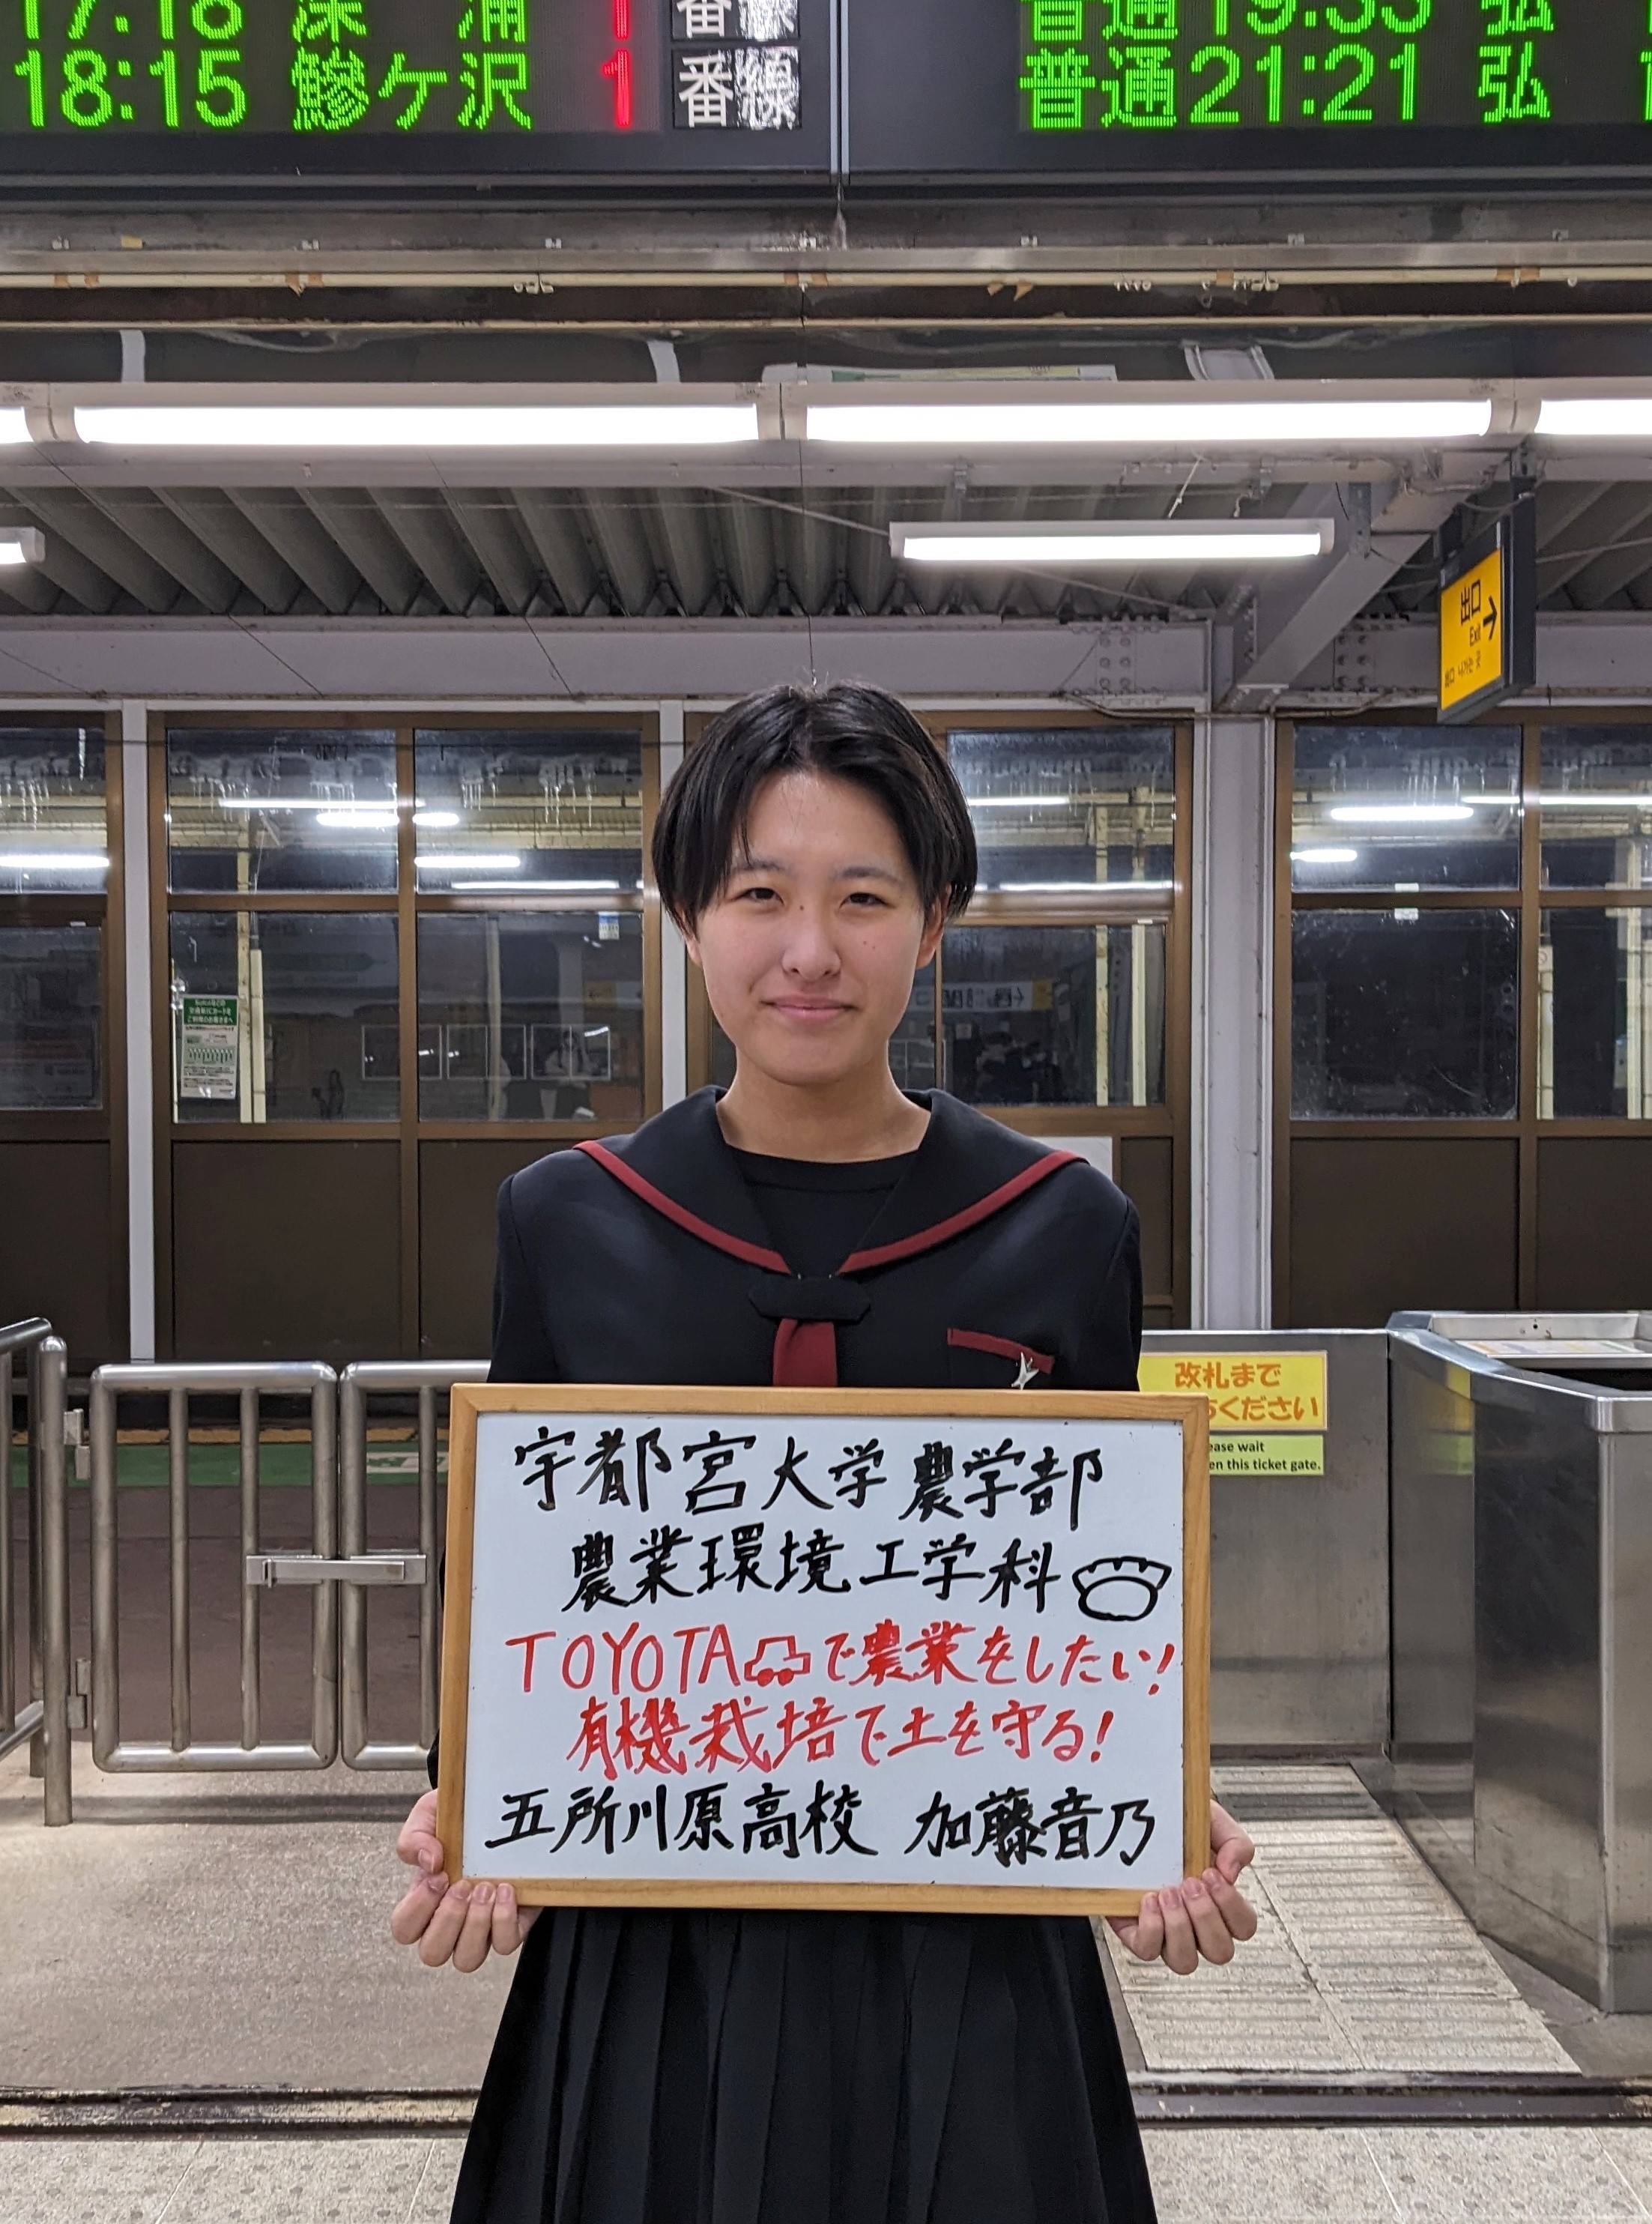 18:15 鰺ケ沢 1 番線
普通 21:21 弘
出口
Exit
改札まで
ください
ease wait
en this ticket gate.
宇都宮大学農学部
農業環境工学科
TOYOTAで農業をしたい!
有機栽培で土を守る!
五所川原高校 加藤音乃